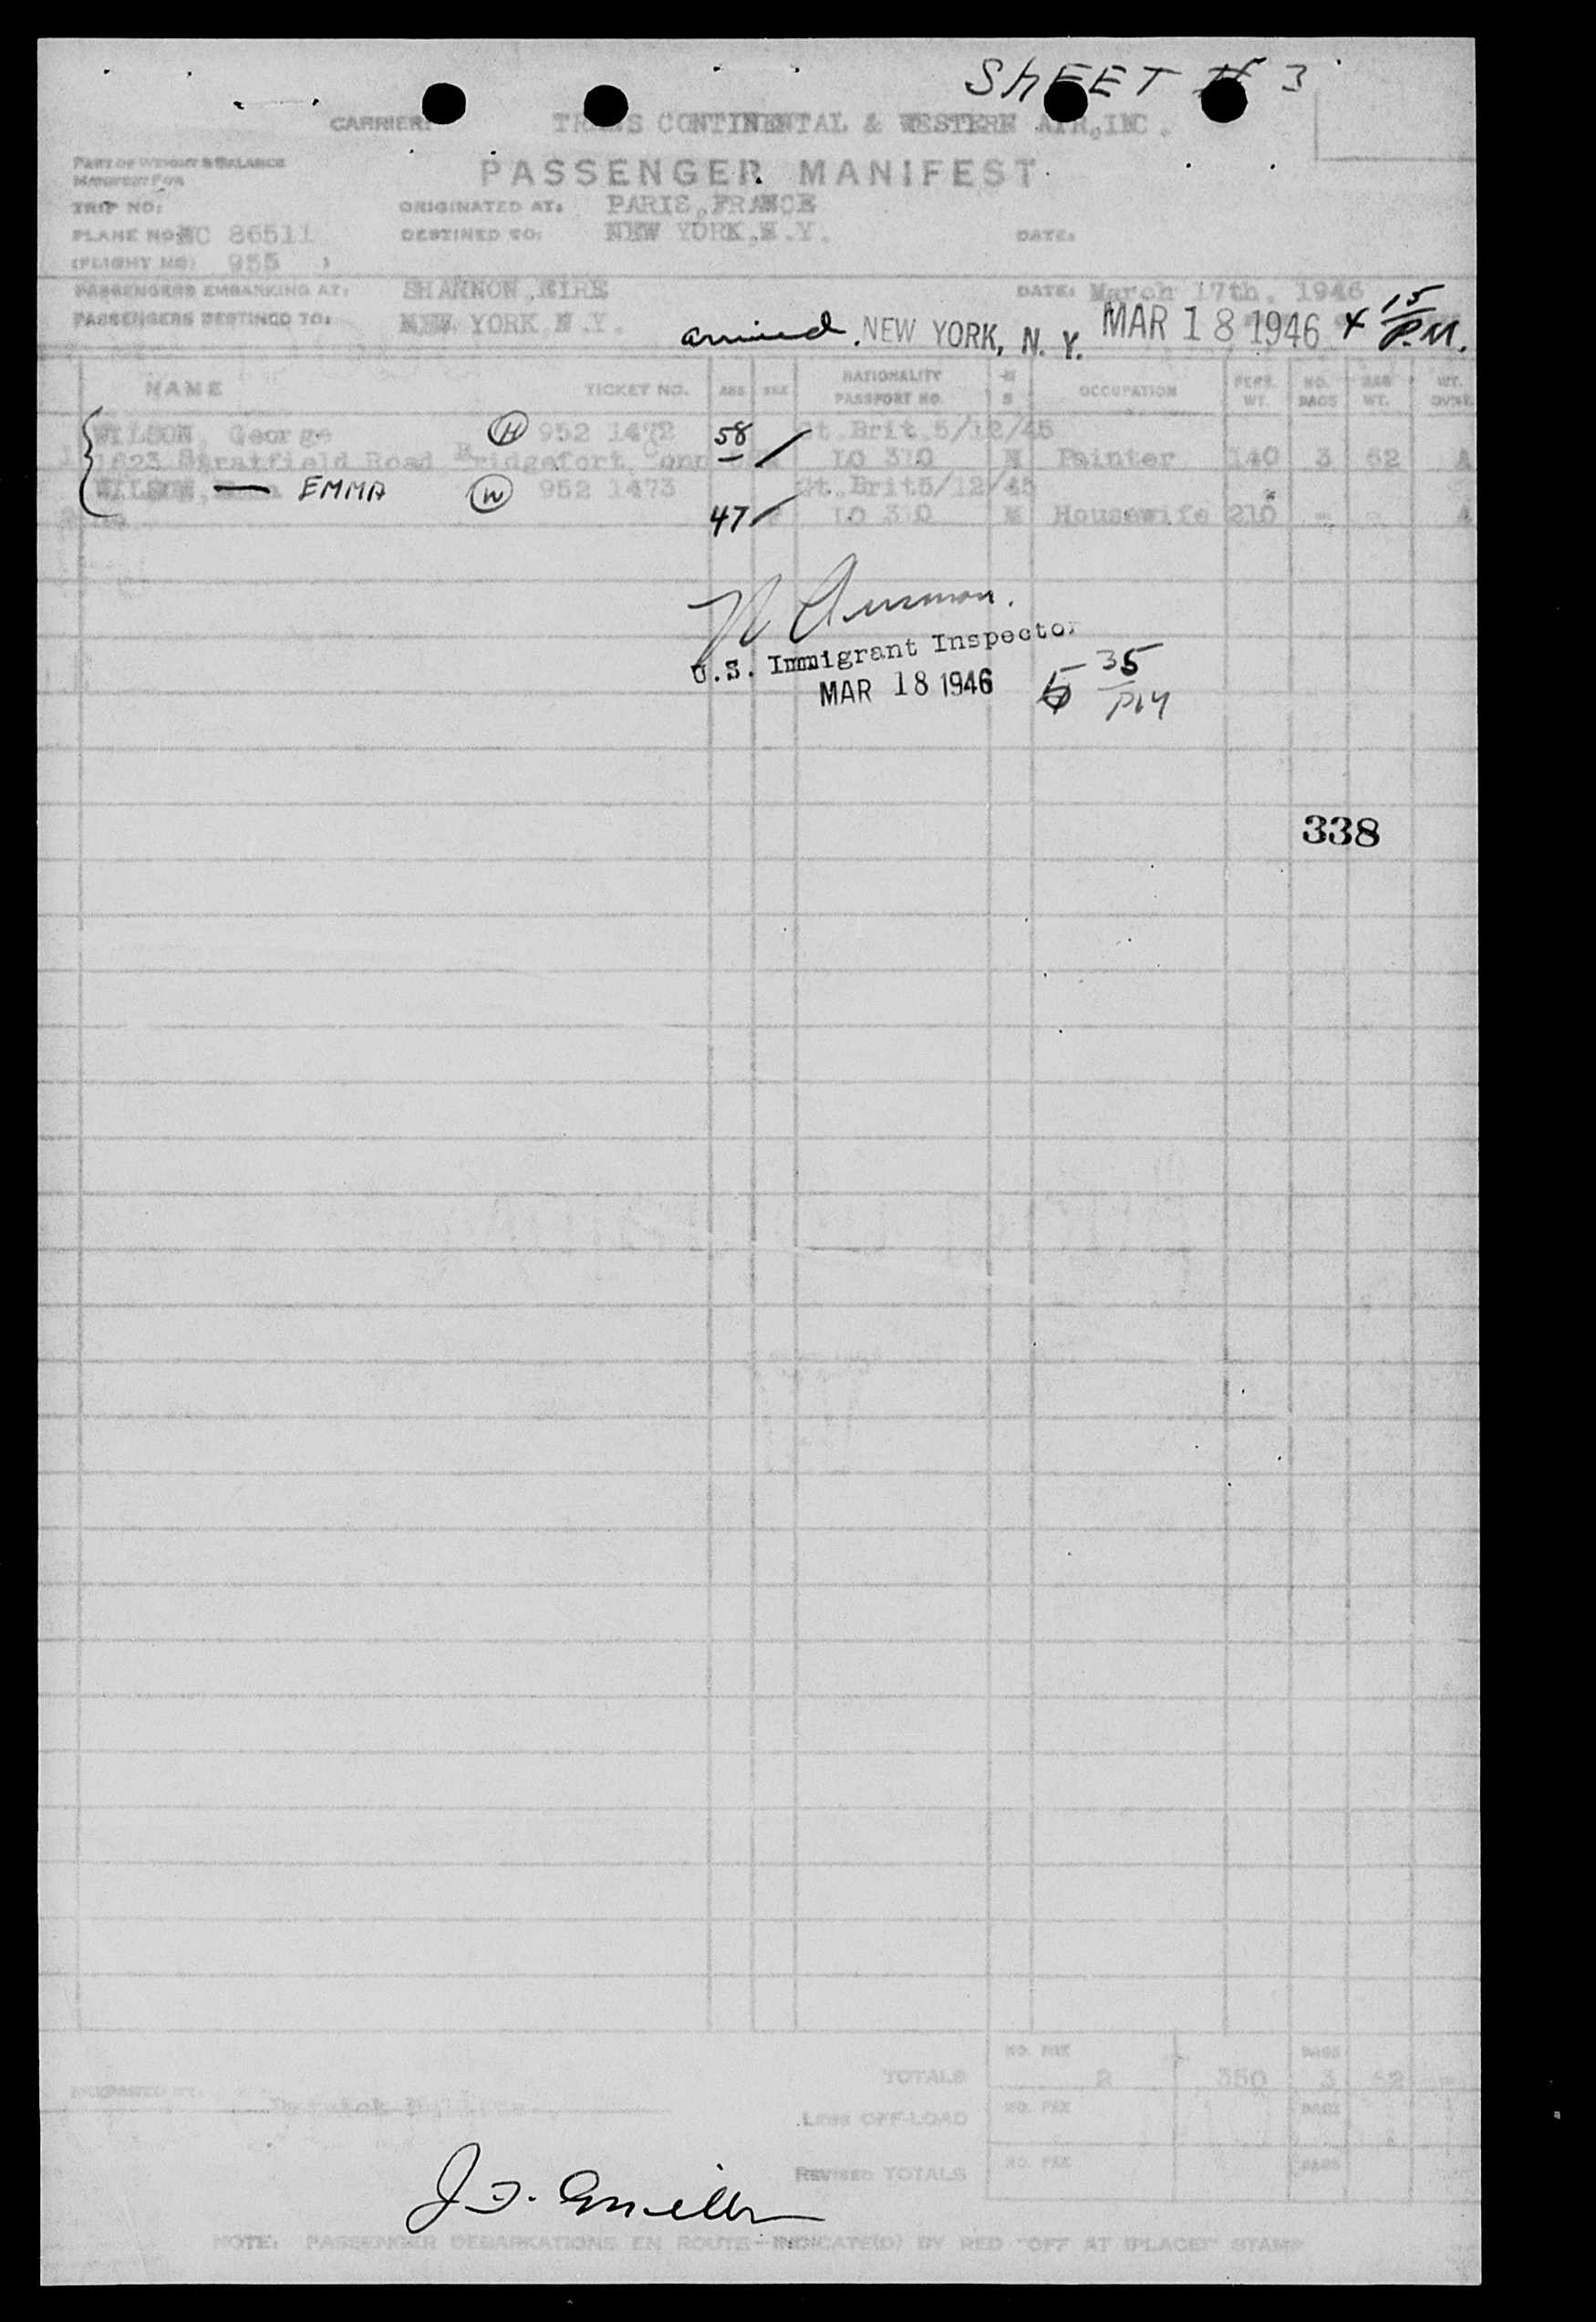 SHEET # 3
CARRIER: TRANS CONTINENTAL & WESTERN AIR, INC.
PART OF WEIGHT & BALANCE
MANIFEST FOR
PASSENGER MANIFEST
TRIP NO: ORIGINATED AT: PARIS, FRANCE
PLANE NO: NC 86511 DESTINED TO: NEW YORK, N.Y. DATE:
(FLIGHT NO: 955 )
PASSENGERS EMBARKING AT: SHANNON, EIRE DATE: March 17th. 1946
PASSENGERS DESTINED TO: NEW YORK N.Y.
arrived NEW YORK, N. Y. MAR 18 1946 4 15 P.M.
NAME TICKET NO. AGE SEX NATIONALITY PASSPORT NO. OCCUPATION PERS. WT. NO. BAGS BAG WT. WT. OVER.
WILSON, George H 952 1472 58 Gt.Brit.5/12/45
1623 Stratfield Road Bridgefort, Conn LO 310 M Painter 140 3 62 A
WILSON, EMMA W 952 1473 Gt.Brit5/12/45
47 LO 310 M Housewife 210 - - A
U.S. Immigrant Inspector
MAR 18 1946 5 35 PM
338
NO. PAX BAGS
TOTALS 2 350 3 62
PREPARED BY:
NO. PAX BAGS
LESS OFF-LOAD
NO. PAX BAGS
REVISED TOTALS
NOTE: PASSENGER DEBARKATIONS EN ROUTE—INDICATE(D) BY RED "OFF AT (PLACE)" STAMP